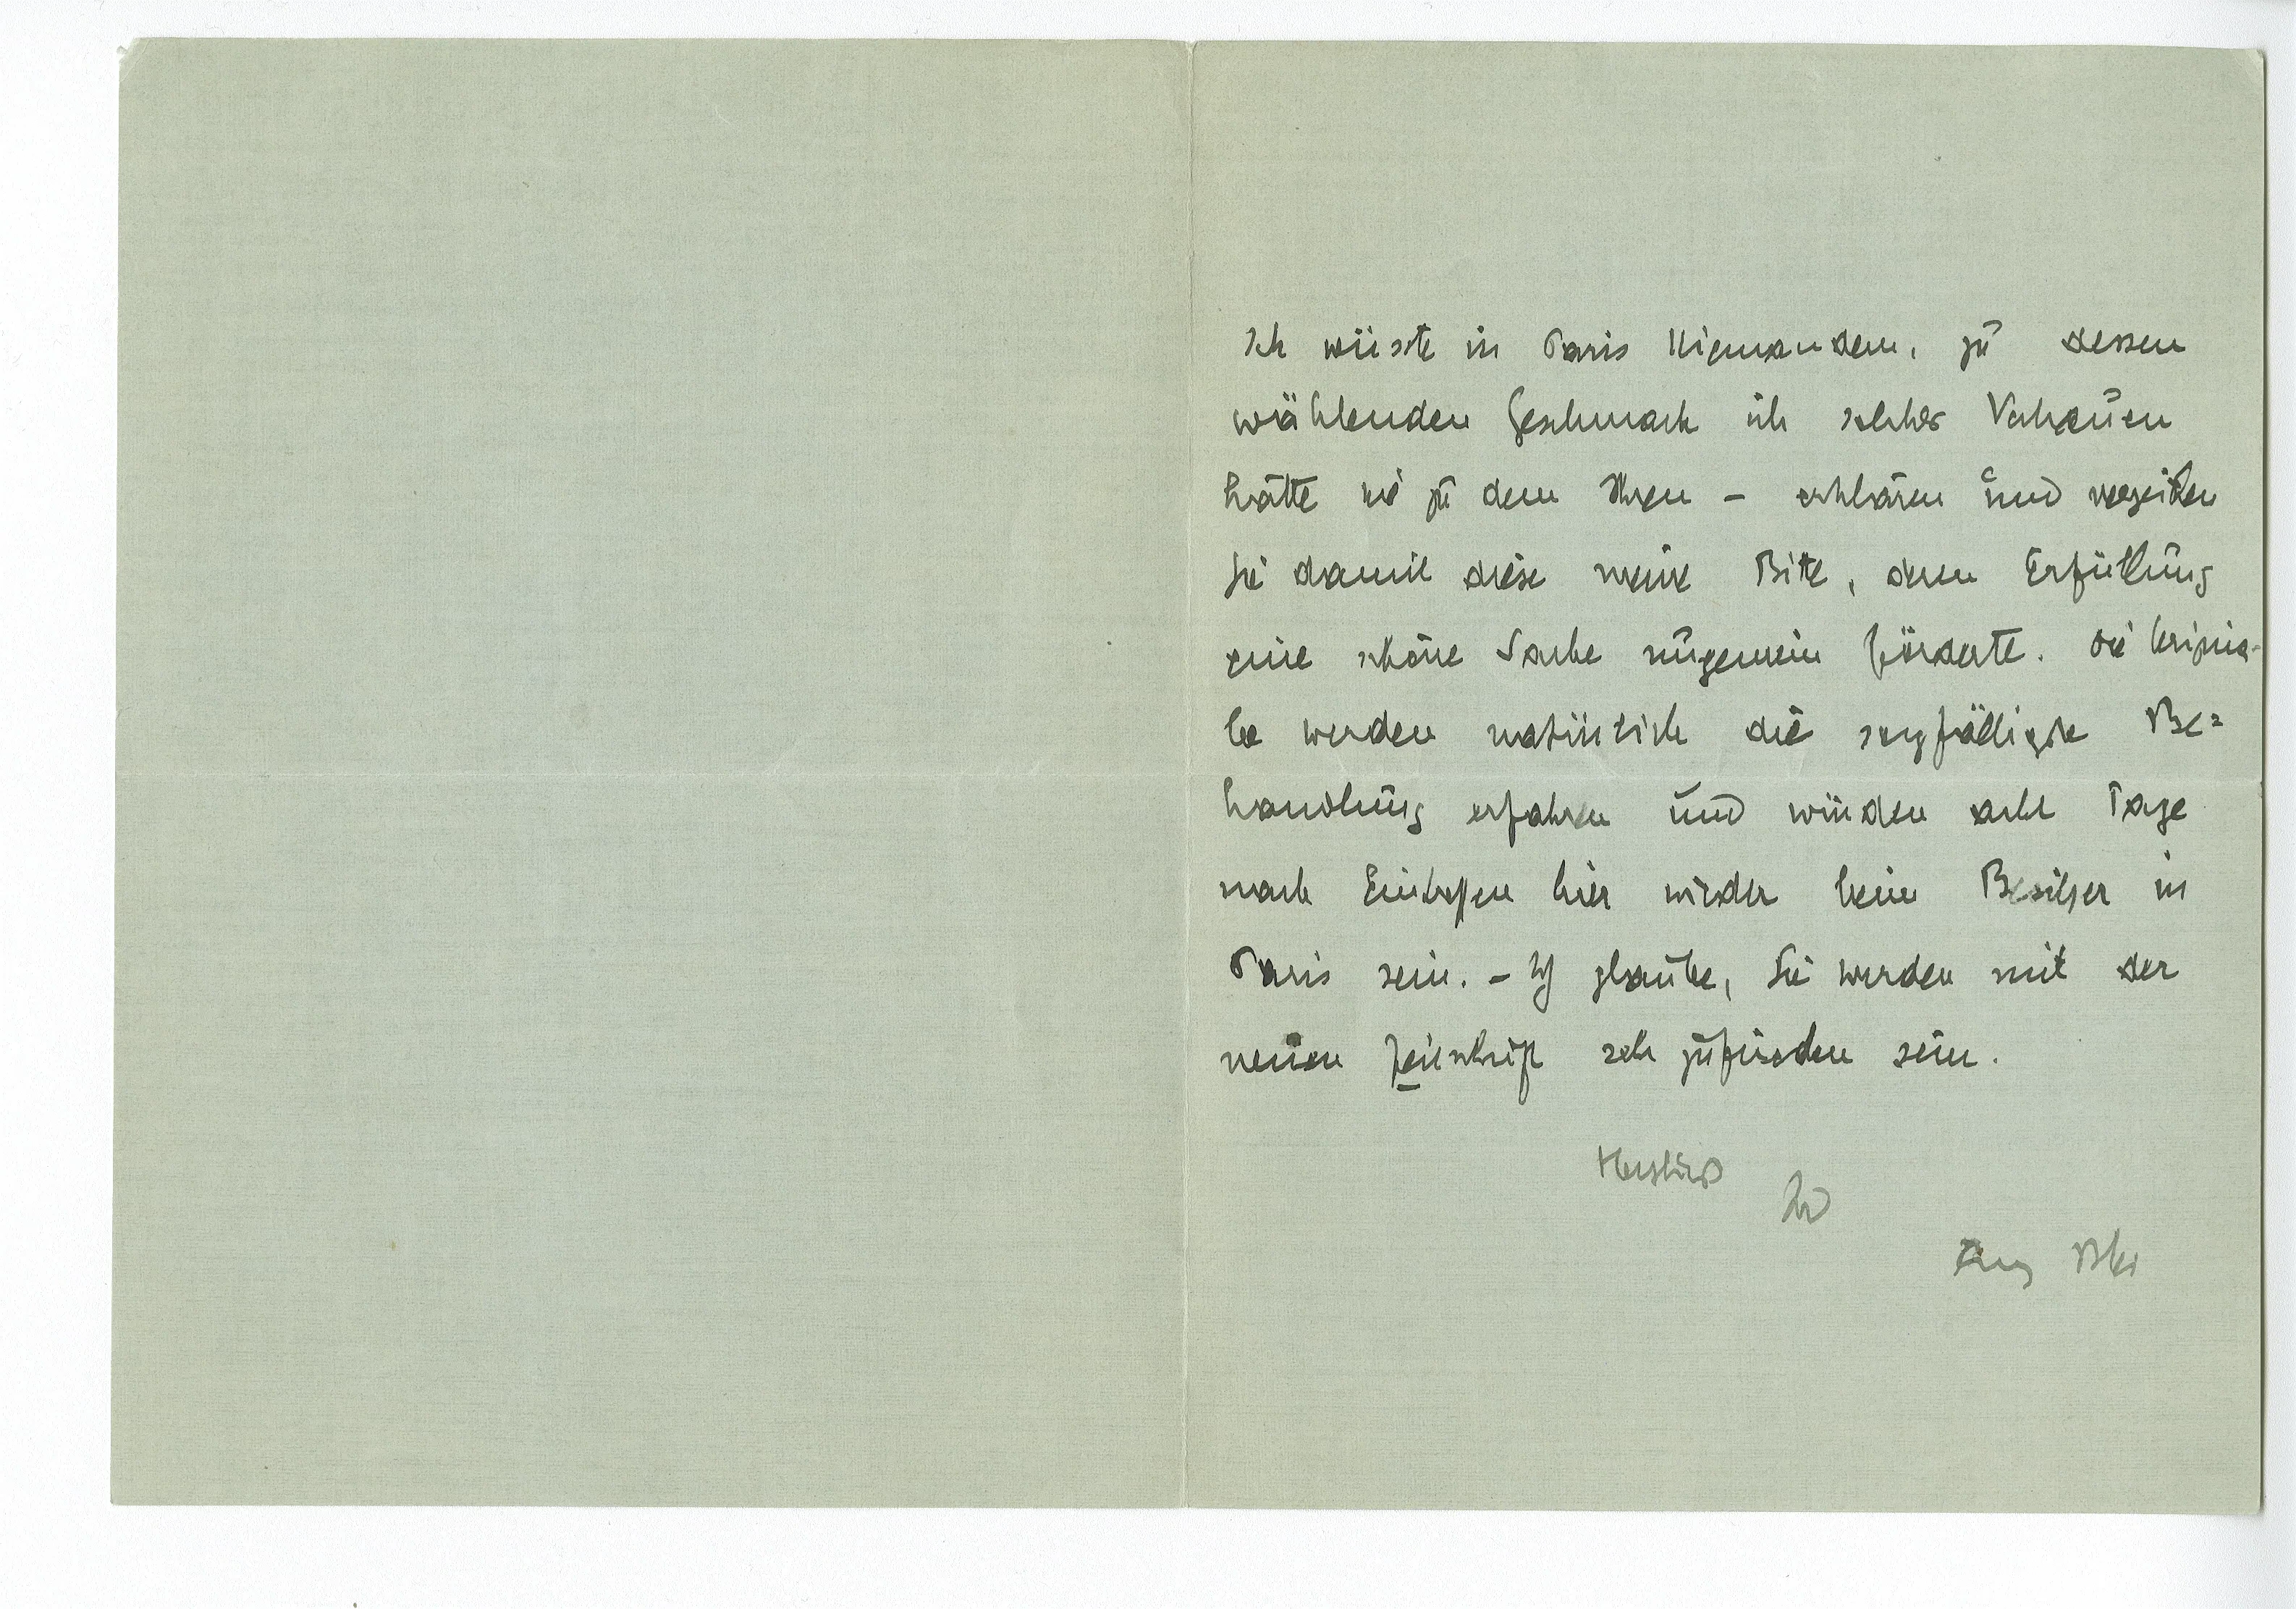 Ich wüsste in Paris Niemanden, zu dessen
wählenden Geschmack ich solches Vertrauen
hätte wie zu dem Ihren – erklären und verzeihen
Sie damit diese meine Bitte, deren Erfüllung
eine schöne Sache ungemein förderte. Die Origina-
le werden natürlich die sorgfältigste Be=
handlung erfahren und würden acht Tage
nach Eintreffen hier wieder beim Besitzer in
Paris sein. – Ich glaube, Sie werden mit der
neuen Zeitschrift sehr zufrieden sein.
Herzlichst
Ihr
Franz Blei